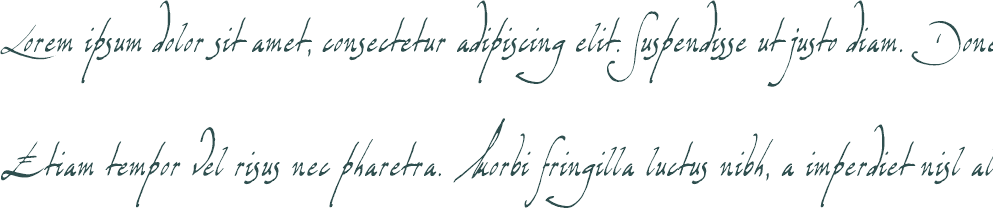 Lorem ipsum dolor sit amet, consectetur adipiscing elit. Suspendisse ut justo diam. Donc
Etiam tempor vel risus nec pharetra. Morbi fringilla luctus nibh, a imperdiet nisl al